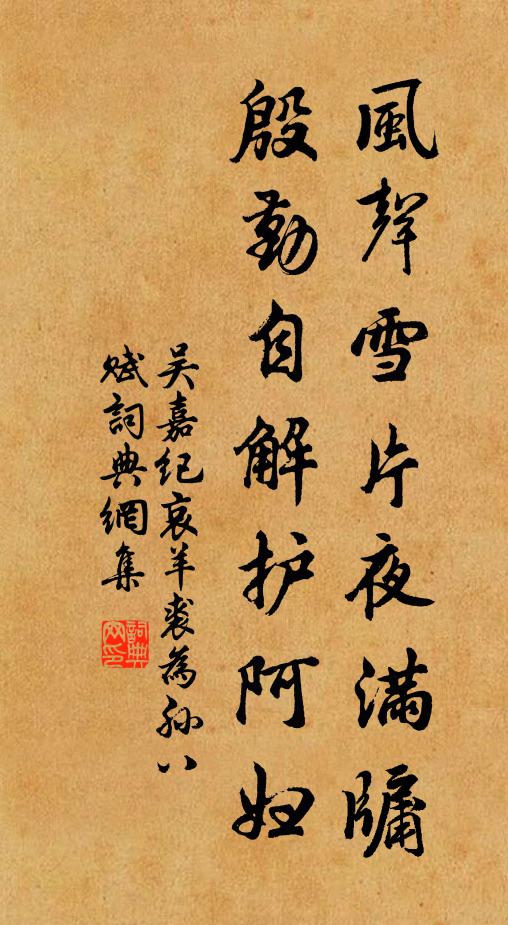 風聲雪片夜滿牖
殷勤自解护阿妇
吴嘉纪哀羊裘為孙八
赋詞典網集
詞典
网印